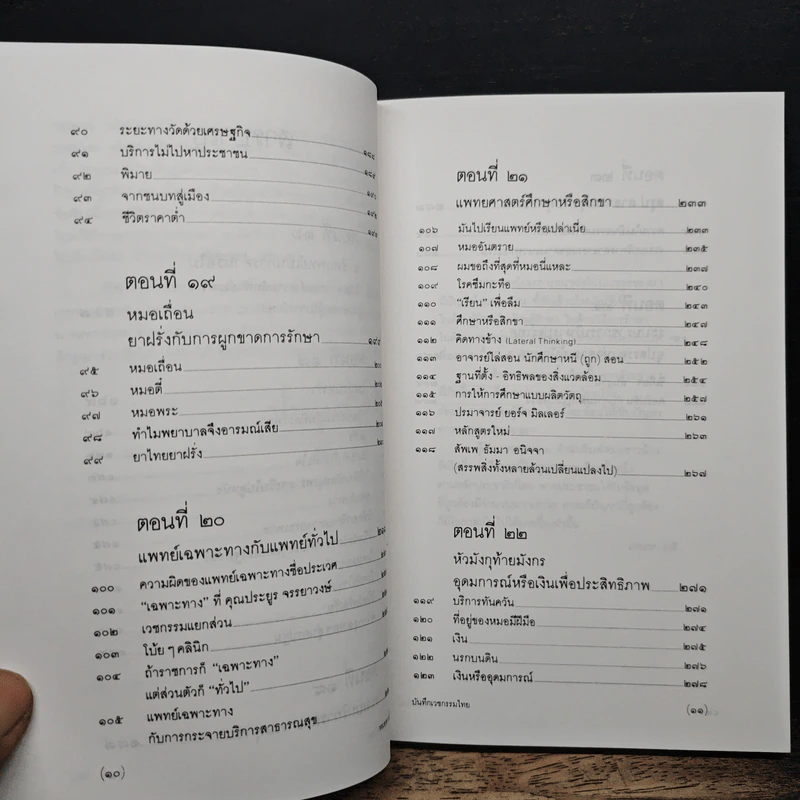 ๙๐ ระยะทางวัดด้วยเศรษฐกิจ
๙๑ บริการไม่ไปหาประชาชน ๑๘๔
๙๒ พิมาย
๙๓ จากชนบทสู่เมือง
๙๔ ชีวิตราคาต่ำ
ตอนที่ ๑๙
หมอเถื่อน
ยาฝรั่งกับการผูกขาดการรักษา
๙๕ หมอเถื่อน
๙๖ หมอตี๋
๙๗ หมอพระ
๙๘ ทำไมพยาบาลจึงอารมณ์เสีย
๙๙ ยาไทยยาฝรั่ง
ตอนที่ ๒๐
แพทย์เฉพาะทางกับแพทย์ทั่วไป
๑๐๐ ความผิดของแพทย์เฉพาะทางชื่อประเวศ
๑๐๑ “เฉพาะทาง” ที่ คุณประยูร จรรยาวงษ์
๑๐๒ เวชกรรมแยกส่วน
๑๐๓ โบ้ย ๆ คลินิก
๑๐๔ ถ้าราชการก็ “เฉพาะทาง”
แต่ส่วนตัวก็ “ทั่วไป”
๑๐๕ แพทย์เฉพาะทาง
กับการกระจายบริการสาธารณสุข
(๑๐)
ตอนที่ ๒๑
แพทยศาสตร์ศึกษาหรือสิกขา ๒๓๓
๑๐๖ มันไปเรียนแพทย์หรือเปล่าเนี่ย ๒๓๓
๑๐๗ หมออันตราย ๒๓๕
๑๐๘ ผมขอถึงที่สุดที่หมอนี่แหละ ๒๓๗
๑๐๙ โรคซึมกะทือ ๒๔๐
๑๑๐ “เรียน” เพื่อลืม ๒๔๓
๑๑๑ ศึกษาหรือสิกขา ๒๔๗
๑๑๒ คิดทางข้าง (Lateral Thinking) ๒๔๘
๑๑๓ อาจารย์ไล่สอน นักศึกษาหนี (ถูก) สอน ๒๕๒
๑๑๔ ฐานที่ตั้ง - อิทธิพลของสิ่งแวดล้อม ๒๕๔
๑๑๕ การให้การศึกษาแบบผลิตวัตถุ ๒๕๗
๑๑๖ ปรมาจารย์ ยอร์จ มิลเลอร์ ๒๖๑
๑๑๗ หลักสูตรใหม่ ๒๖๓
๑๑๘ สัพเพ ธัมมา อนิจจา
(สรรพสิ่งทั้งหลายล้วนเปลี่ยนแปลงไป) ๒๖๗
ตอนที่ ๒๒
หัวมังกุท้ายมังกร
อุดมการณ์หรือเงินเพื่อประสิทธิภาพ ๒๗๑
๑๑๙ บริการทันควัน ๒๗๑
๑๒๐ ที่อยู่ของหมอมีฝีมือ ๒๗๔
๑๒๑ เงิน ๒๗๕
๑๒๒ นรกบนดิน ๒๗๖
๑๒๓ เงินหรืออุดมการณ์ ๒๗๘
บันทึกเวชกรรมไทย (๑๑)